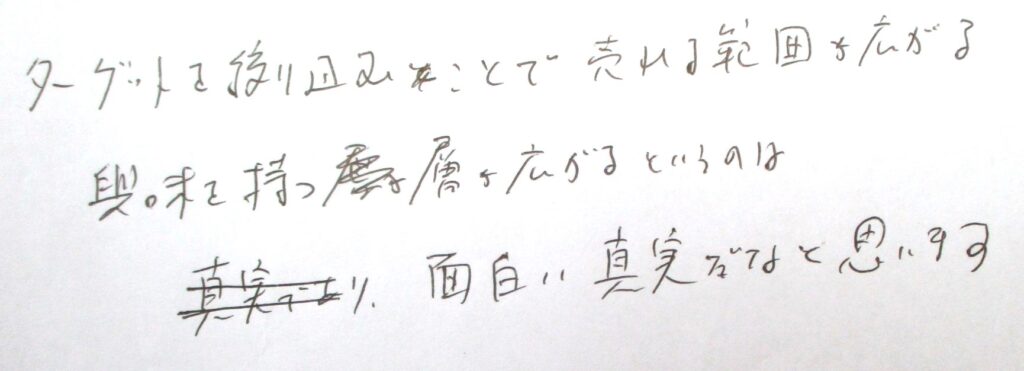 ターゲットを絞り込むことで売れる範囲が広がる
興味を持つ層が広がるというのは
真実であり、面白い真実だなと思います